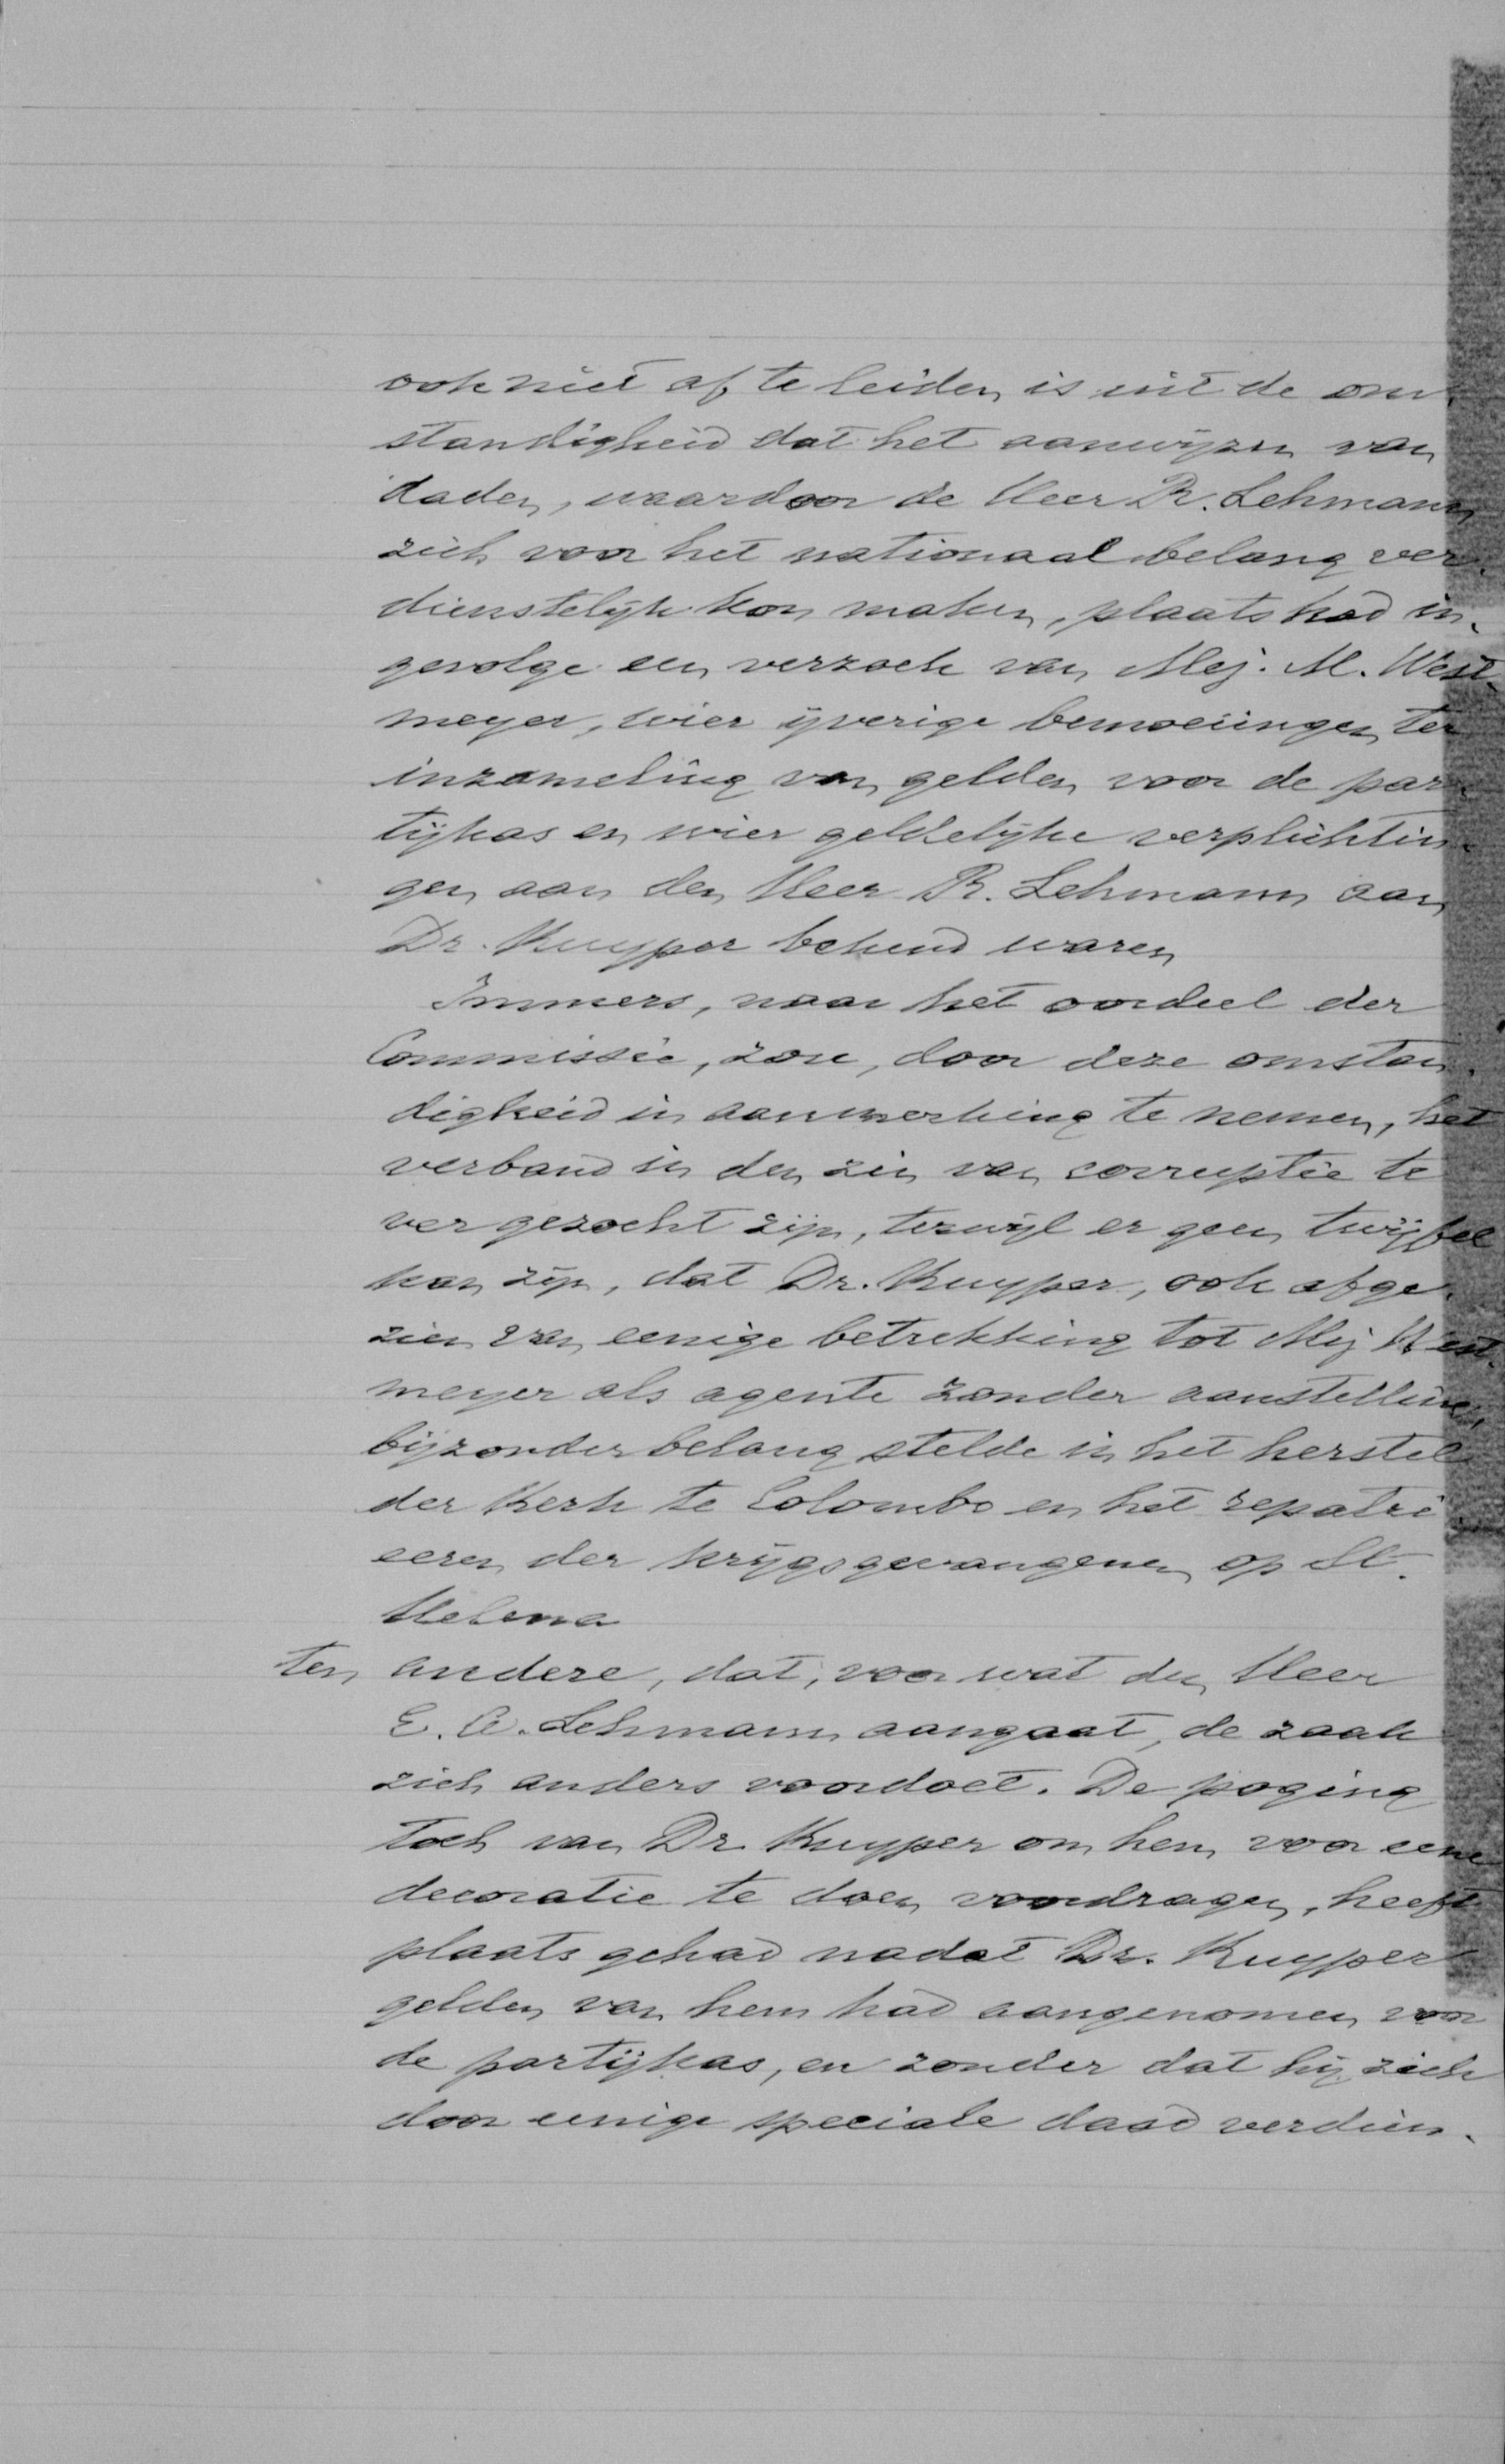 ook niet af te leiden is uit de om-
standigheid dat het aanwijzen van
daden, waardoor de Heer R. Lehmann
zich voor het nationaal belang ver-
dienstelijk kon maken, plaats had in-
gevolge een verzoek van Mej. M. West-
meyer, wier ijverige bemoeiingen ter
inzameling van gelden voor de par-
tijkas en wier geldelijke verplichtin-
gen aan den Heer R. Lehmann aan
Dr. Kuyper bekend waren
Immers, naar het oordeel der
Commissie, zou, door deze omstan-
digheid in aanmerking te nemen, het
verband in den zin van corruptie te
ver gezocht zijn, terwijl er geen twijfel
kan zijn, dat Dr. Kuyper, ook afge-
zien van eenige betrekking tot Mej West-
meyer als agente zonder aanstelling,
bijzonder belang stelde in het herstel
der Kerk te Colombo en het repatri-
eeren der krijgsgevangenen op St.
Helena
ten andere, dat, voor wat den Heer
E. A. Lehmann aangaat, de zaak
zich anders voordoet. De poging
toch van Dr. Kuyper om hem voor eene
decoratie te doen voordragen, heeft
plaats gehad nadat Dr. Kuyper
gelden van hem had aangenomen voor
de partijkas, en zonder dat hij zich
door eenige speciale daad verdien-